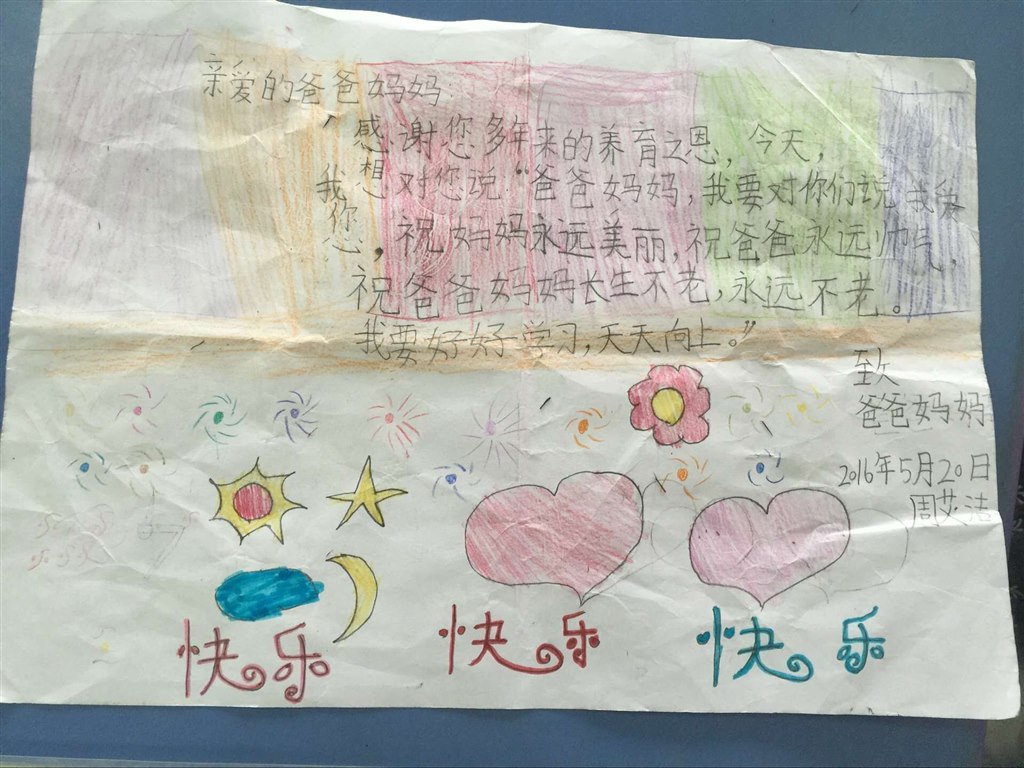 亲爱的爸爸妈妈：
感谢您多年来的养育之恩，今天，
我想对您说“爸爸妈妈，我要对你们说我爱
你心，祝妈妈永远美丽，祝爸爸永远帅气，
祝爸爸妈妈长生不老，永远不老。
我要好好学习，天天向上。”
致
爸爸妈妈
2016年5月20日
周艾洁
快乐 快乐 快乐